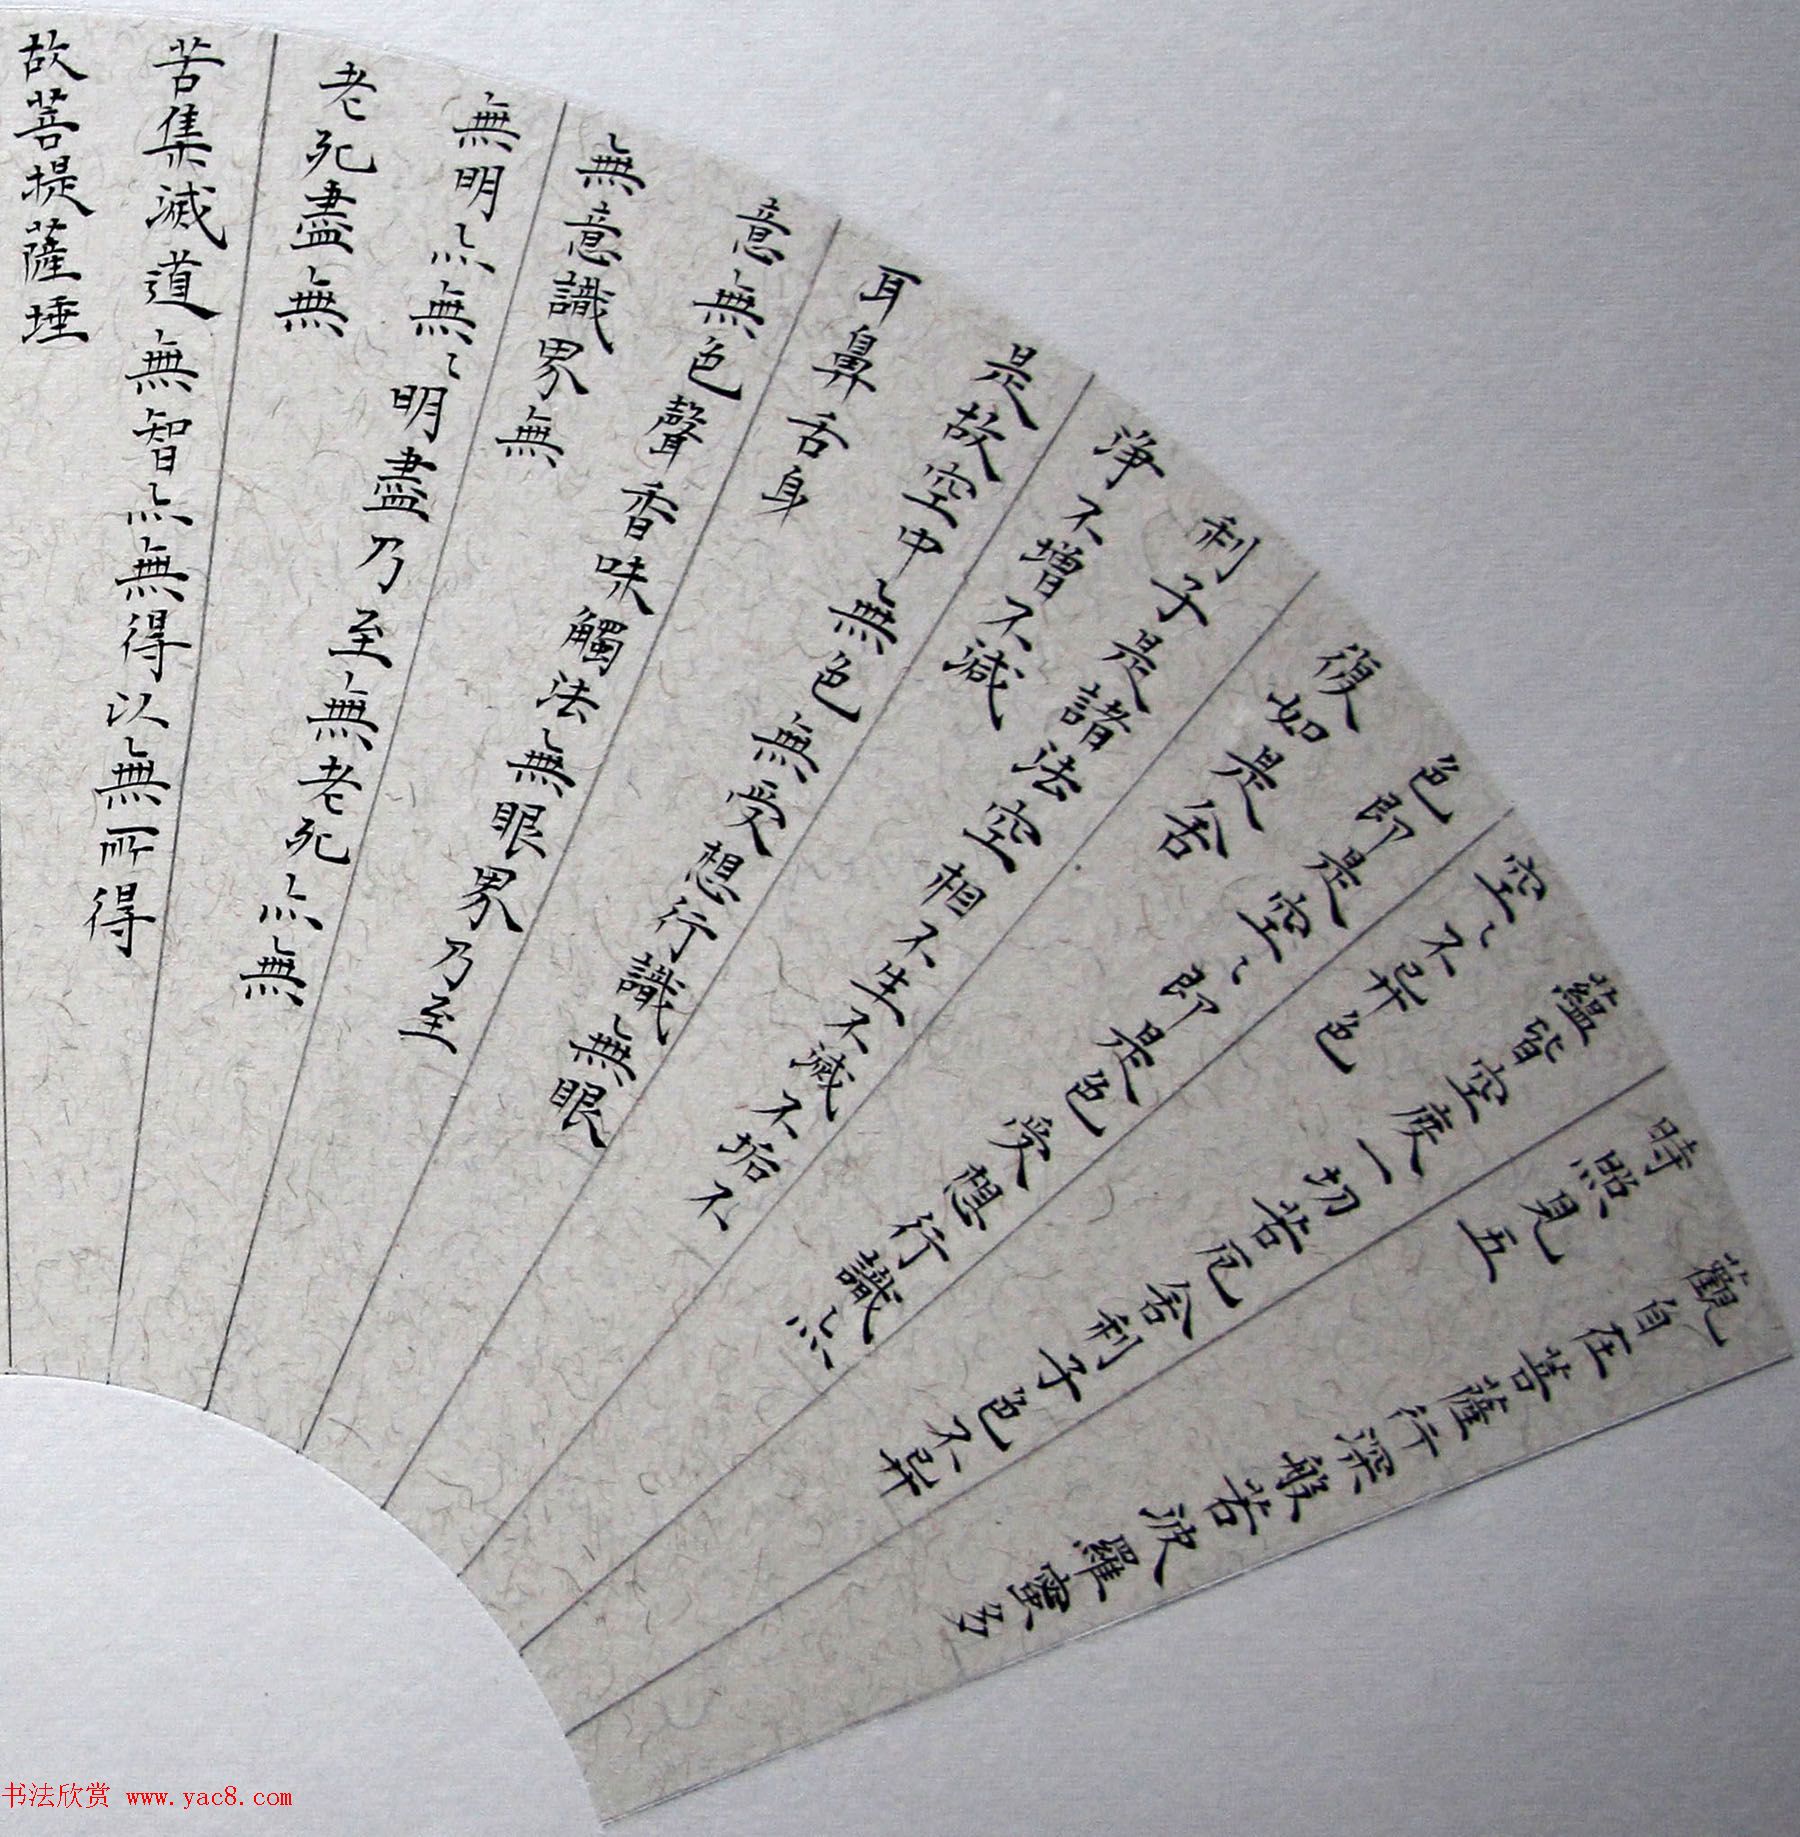 觀自在菩薩行深般若波羅蜜多
時照見五
蘊皆空度一切苦厄舍利子色不异
空〻不异色
色即是空〻即是色受想行識亦
復如是舍
利子是諸法空相不生不滅不垢不
淨不增不減
是故空中無色無受想行識無眼
耳鼻舌身
意無色聲香味觸法無眼界乃至
無意識界無
無明亦無〻明盡乃至無老死亦無
老死盡無
苦集滅道無智亦無得以無所得
故菩提薩埵
书法欣赏 www.yac8.com